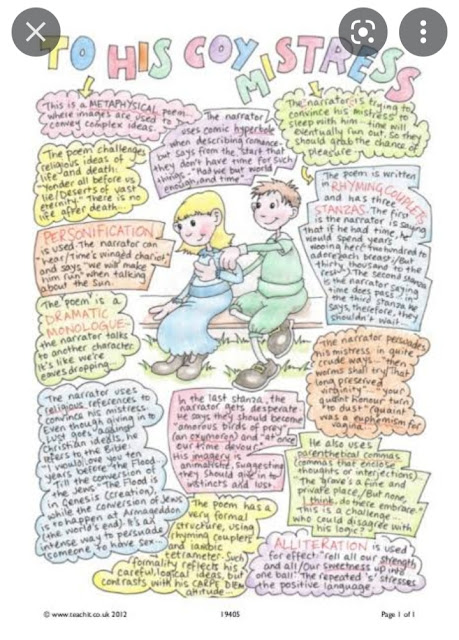 TO HIS COY MISTRESS
This is a METAPHYSICAL poem
where images are used to
convey complex ideas.
The narrator
uses comic hyperbole
when describing romance-
but says from the start that
they don't have time for such
things - "Had we but world
enough, and time"
The narrator is trying to
convince his mistress to
sleep with him - time will
eventually run out. So they
should grab the chance of
pleasure
The poem challenges
religious ideas of
life and death.
"Yonder all before us
lie/Deserts of vast
eternity." There is no
life after death.
The poem is written
in RHYMING COUPLETS
and has three
STANZAS. The first
is the narrator saying
that if he had time, he
would spend years
wooing her ("two hundred to
adore each breast/But
thirty thousand to the
rest"). The second stanza
is the narrator saying
time does pass. In
the third stanza he
says, therefore, they
shouldn't wait.
PERSONIFICATION
is used. The narrator can
"hear/Time's winged chariot",
and says "we will make
him run" when talking
about the Sun.
The poem is a
DRAMATIC
MONOLOGUE-
the narrator talks
to another character.
It's like we're
eavesdropping...
The narrator persuades
his mistress in quite
crude ways- "then
worms shall try/That
long preserved
virginity" "your
quaint honour turn
to dust" (quaint
was a euphemism for
vagina
The narrator uses
religious references to
convince his mistress.
Even though giving in to
Lust goes against
Christian ideals, he
refers to the Bible:
"I would/Love you ten
years before the Flood...
Till the conversion of
the Jews" The Flood is
in Genesis (creation),
while the conversion of Jews
is to happen at Armageddon
(the world's end). It's an
intense way to persuade
someone to have sex...
In the last stanza, the
narrator gets desperate.
He says they should become
"amorous birds of prey"
(an oxymoron) and "at once
our time devour"
His imagery is
animalistic, suggesting
they should give in to
instincts and lust
He also uses
parenthetical commas
(commas that enclose
thoughts or interjections).
"The grave's a fine and
private place/But none,
I think, do there embrace"
This is a challenge -
who could disagree with
his logic?
The poem has a
very formal
structure, using
rhyming couplets
and iambic
tetrameter. Such
formality reflects his
careful, logical ideas, but
contrasts with his CARPE DIEM
attitude...
ALLITERATION is used
for effect. "roll all our strength
and all/Our sweetness up into
one ball". The repeated 's' stresses
the positive language.
© www.teachit.co.uk 2012
19405
Page 1 of 1